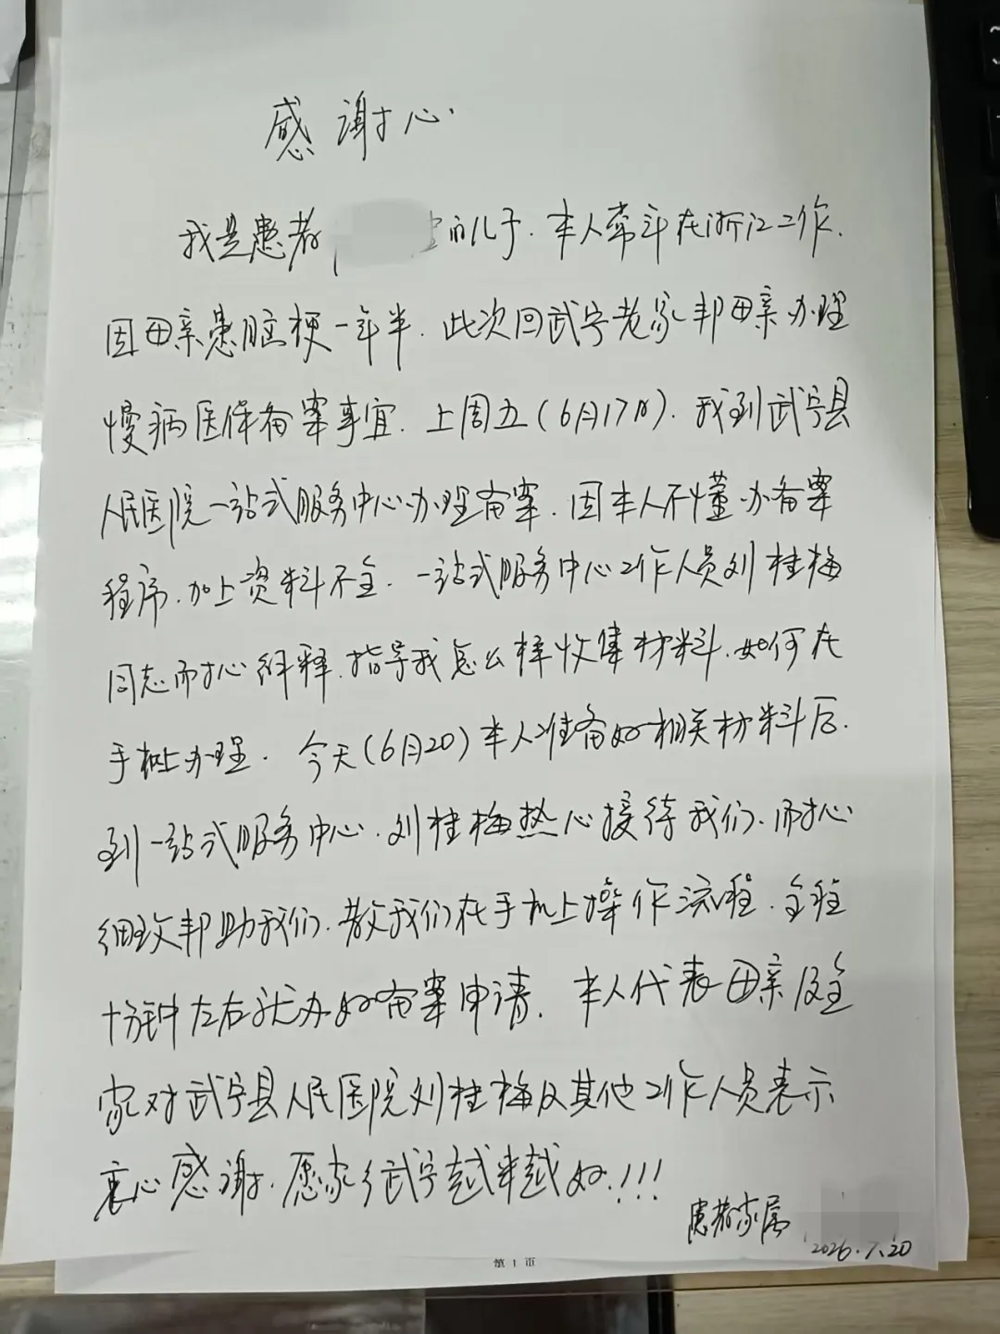 感谢心.
我是患者 的儿子.本人常年在浙江工作.
因母亲患脑梗一年半.此次回武宁老家帮母亲办理
慢病医保备案事宜.上周五(6月17日).我到武宁县
人民医院一站式服务中心办理备案.因本人不懂办备案
程序.加上资料不全.一站式服务中心工作人员刘桂梅
同志耐心解释.指导我怎么样收集材料.如何在
手机上办理.今天(6月20)本人准备好相关材料后.
到一站式服务中心.刘桂梅热心接待我们.耐心
细致帮助我们.教我们在手机上操作流程.全程
十分钟左右就办好备案申请.本人代表母亲及全
家对武宁县人民医院刘桂梅及其他工作人员表示
衷心感谢.愿家乡武宁越来越好.!!!
患者家属
2026.7.20
第 1 页